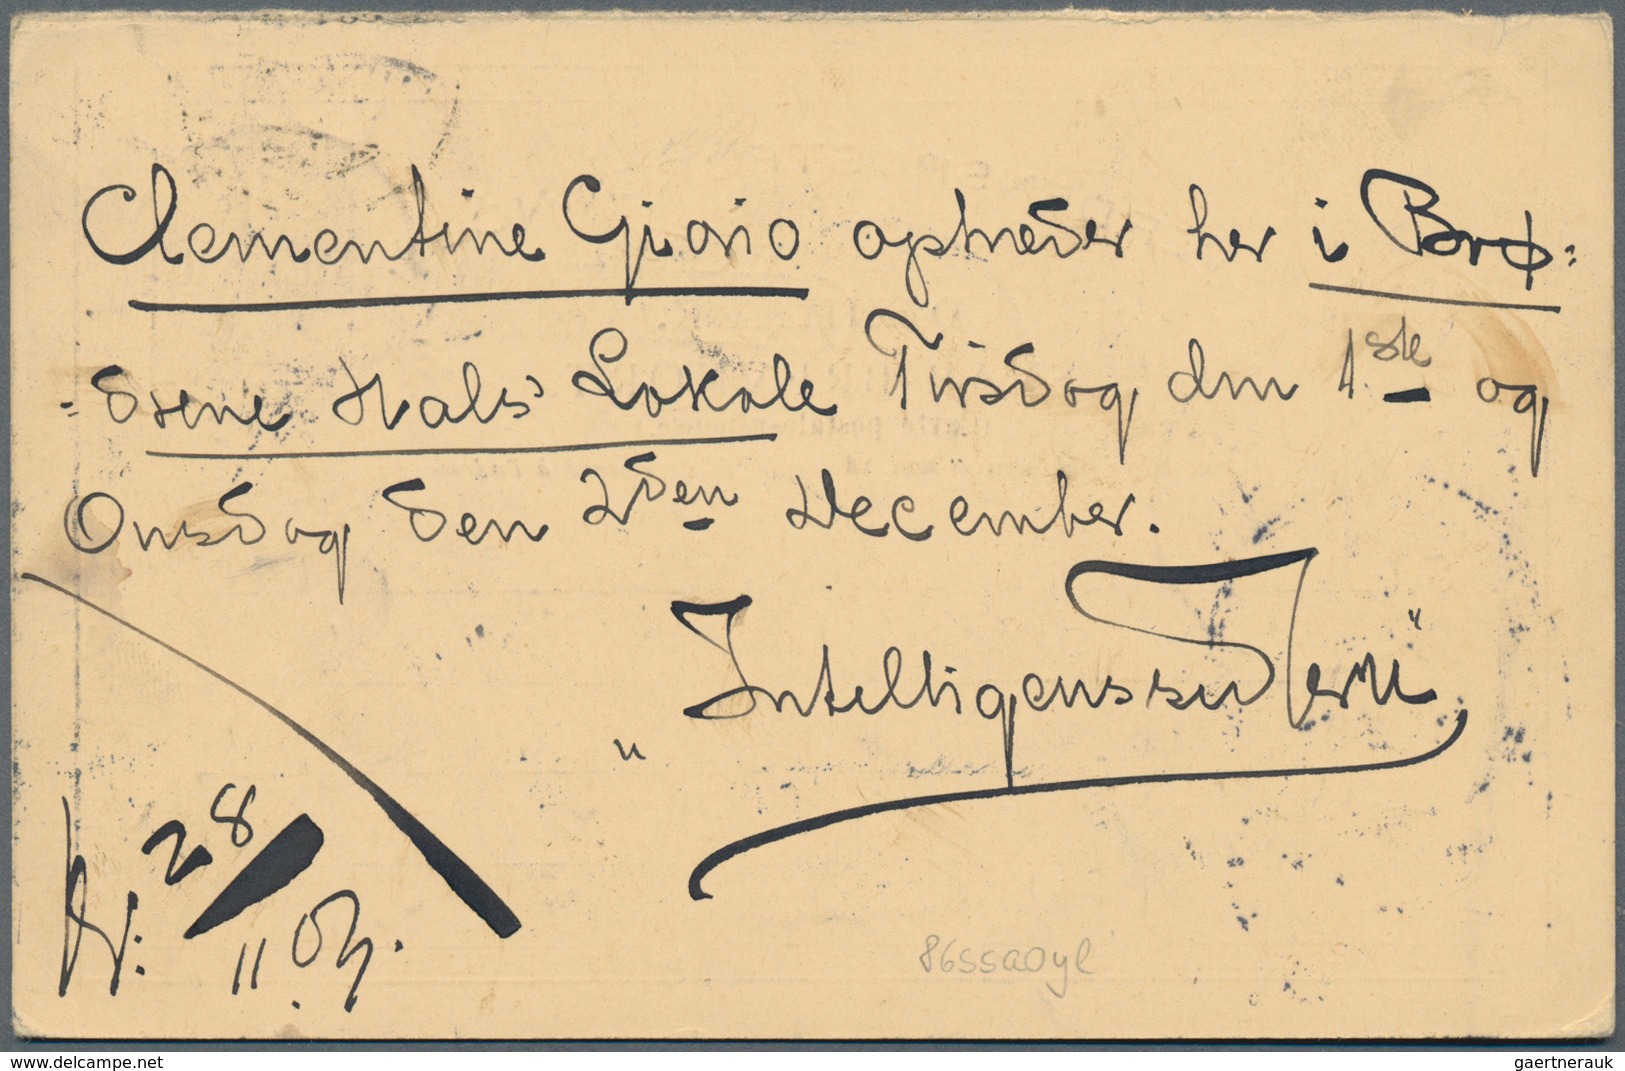 Clementine Giorio optræder her i Brø=
=drene Hals' Lokale Tirsdag den 1ste og
Onsdag den 2den December.
"Intelligenssedlerne"
28/11 03.
86ssa0yl
delcampe.net
gaertnerauk